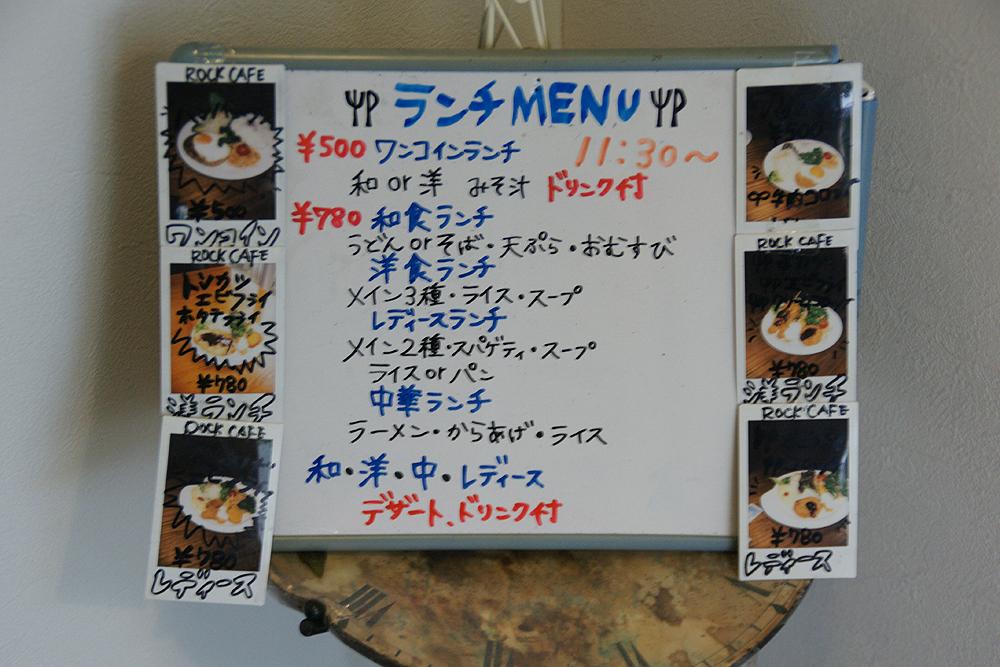 ランチMENU
¥500 ワンコインランチ 11:30～
和or洋 みそ汁 ドリンク付
¥780 和食ランチ
うどんorそば・天ぷら・おむすび
洋食ランチ
メイン3種・ライス・スープ
レディースランチ
メイン2種・スパゲティ・スープ
ライスorパン
中華ランチ
ラーメン・からあげ・ライス
和・洋・中・レディース
デザート、ドリンク付
ROCK CAFE
¥500
ワンコイン
ROCK CAFE
トンカツ
エビフライ
ホタテフライ
¥780
洋ランチ
ROCK CAFE
¥780
レディース
ROCK CAFE
¥780
洋ランチ
ROCK CAFE
¥780
レディース